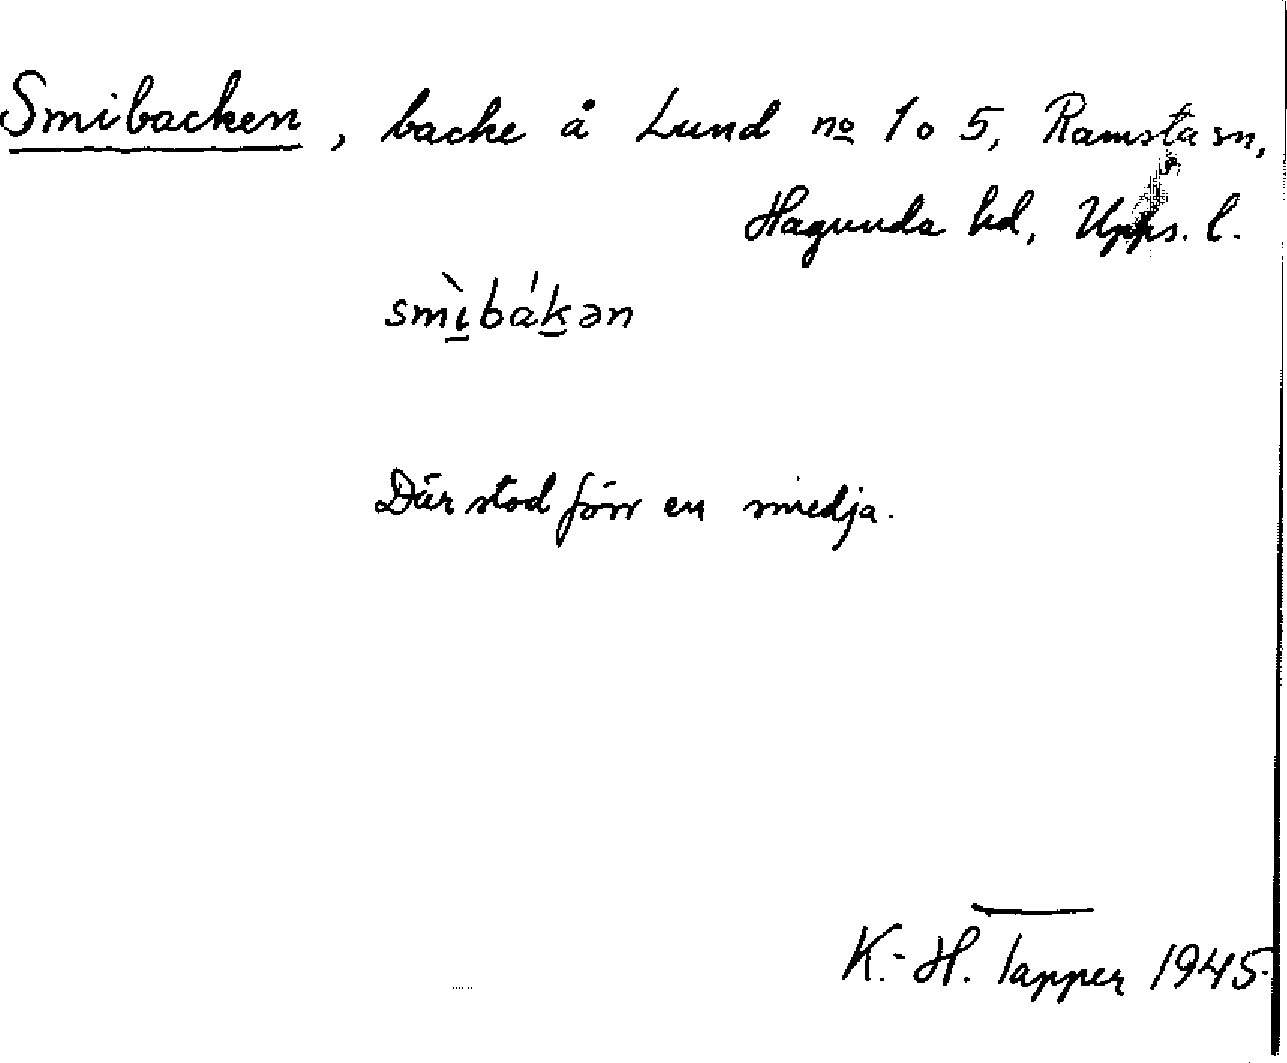 Smibacken, backe å Lund no 1 o 5, Ramsta sn,
Hagunda hd, Upps. l.
smìbákən
Där stod förr en smedja.
K.-H. Tapper 1945.